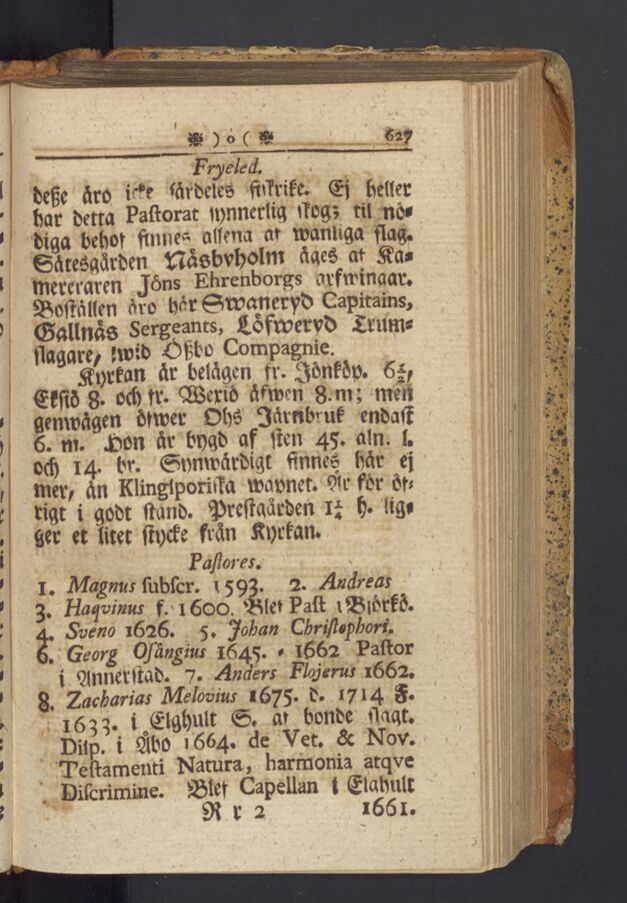 ) o ( 627
Fryeled.
deße äro icke särdeles fiskrike. Ej heller
har detta Pastorat synnerlig skog; til nö-
diga behof finnes allena af wanliga slag.
Sätesgården Näsbyholm äges af Ka-
mereraren Jöns Ehrenborgs arfwingar.
Boställen äro här Swaneryd Capitains,
Gallnäs Sergeants, Löfweryd Trum-
slagare, wid Ößbo Compagnie.
Kyrkan är belägen fr. Jönköp. 6½,
Eksiö 8. och fr. Wexiö äfwen 8. m; men
genwägen öfwer Ohs Järnbruk endast
6. m. Hon är bygd af sten 45. aln. l.
och 14. br. Synwärdigt finnes här ej
mer, än Klingsporiska wapnet. Är för öf-
rigt i godt stånd. Prestgården 1¼ h. lig-
ger et litet stycke från Kyrkan.
Pastores.
1. Magnus subscr. 1593. 2. Andreas
3. Haqvinus f. 1600. Blef Past i Björkö.
4. Sveno 1626. 5. Johan Christophori.
6. Georg Osängius 1645. - 1662 Pastor
i Annerstad. 7. Anders Flojerus 1662.
8. Zacharias Melovius 1675. d. 1714 F.
1633. i Elghult S. af bonde slägt.
Disp. i Åbo 1664. de Vet. & Nov.
Testamenti Natura, harmonia atqve
Discrimine. Blef Capellan i Elghult
R r 2 1661.